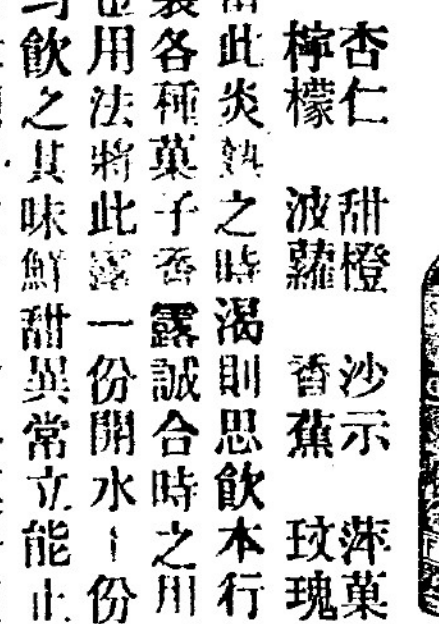 杏仁 甜橙 沙示 萍菓
檸檬 波蘿 香蕉 玫瑰
此炎熱之時渴則思飲本行
製各種菓子香露誠合時之用
也用法將此露一份開水一份
飲之其味鮮甜異常立能止